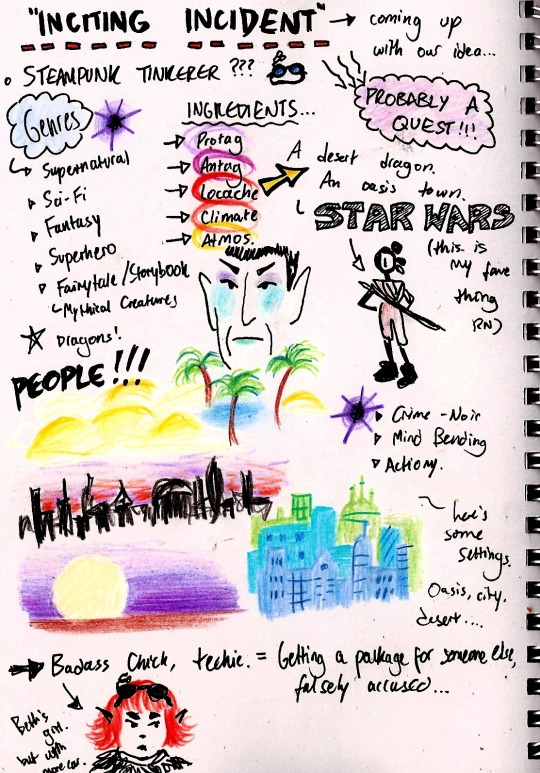 "INCITING INCIDENT" → coming up
with our idea...
STEAMPUNK TINKERER ???
PROBABLY A
QUEST!!!
Genres
Supernatural
Sci-Fi
Fantasy
Superhero
Fairytale/Storybook
Mythical Creatures
Dragons!
INGREDIENTS...
Protag
Antag
Climate
Atmos.
A desert dragon.
An oasis town.
STAR WARS
(this is
my fave
thing
RN)
PEOPLE!!!
Crime-Noir
Mind Bending
Actiony.
here's
some
settings.
Oasis, city,
desert....
Badass Chick, techie. = Getting a package for someone else,
falsely accused...
but with